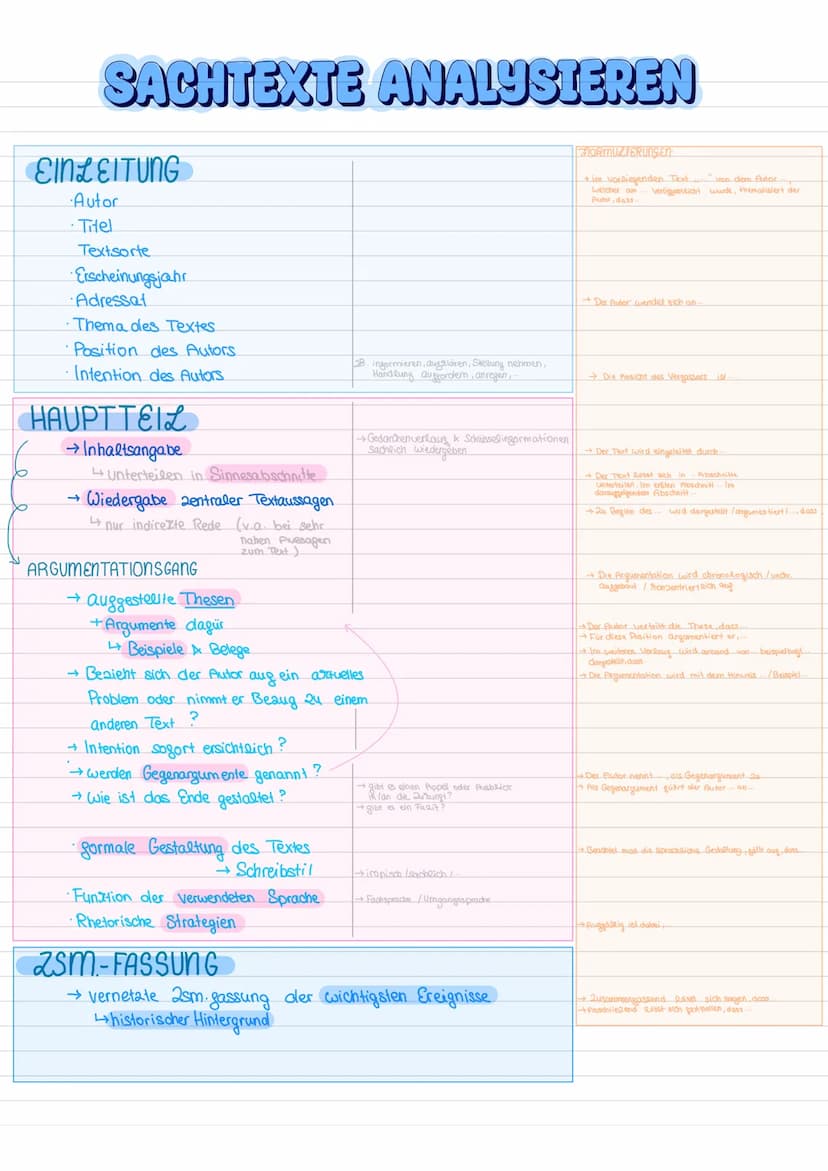 SACHTEXTE ANALYSIEREN
EINLEITUNG
· Autor
· Titel
Textsorte
· Erscheinungsjahr
· Adressat
· Thema des Textes
· Position des Autors
· Intention des Autors
zB. informieren, aufklären, Stellung nehmen,
Handlung auffordern, anregen,...
HAUPTTEIL
→ Inhaltsangabe
↳ unterteilen in Sinnesabschnitte
→ Gedankenverlauf & Schlüsselinformationen
sachlich wiedergeben
→ Wiedergabe zentraler Textaussagen
↳ nur indirekte Rede (v.a. bei sehr
nahen Aussagen
zum Text)
ARGUMENTATIONSGANG
→ aufgestellte Thesen
+ Argumente dafür
↳ Beispiele & Belege
→ Bezieht sich der Autor auf ein aktuelles
Problem oder nimmt er Bezug zu einem
anderen Text?
→ Intention sofort ersichtlich?
→ werden Gegenargumente genannt?
→ Wie ist das Ende gestaltet?
→ gibt es einen Appel oder Ausblick
in/an die Zukunft?
→ gibt es ein Fazit?
· formale Gestaltung des Textes
→ Schreibstil
→ ironisch/sachlich/...
· Funktion der verwendeten Sprache
→ Fachsprache / Umgangssprache
· Rhetorische Strategien
ZSM.-FASSUNG
→ vernetzte Zsm.fassung der wichtigsten Ereignisse
↳ historischer Hintergrund
FORMULIERUNGEN
→ Im vorliegenden Text "....." von dem Autor ...,
welcher am ... veröffentlicht wurde, thematisiert der
Autor, dass...
→ Der Autor wendet sich an...
→ Die Absicht des Verfassers ist...
→ Der Text wird eingeleitet durch...
→ Der Text lässt sich in ... Abschnitte
unterteilen. Im ersten Abschnitt... Im
darauffolgenden Abschnitt...
→ Zu Beginn des ... wird dargestellt/argumentiert/..., dass...
→ Die Argumentation wird chronologisch/unchr.
aufgebaut / konzentriert sich auf
→ Der Autor vertritt die These, dass...
→ Für diese Position argumentiert er,...
→ Im weiteren Verlauf wird anhand von beispielbzgl.
dargestellt, dass
→ Die Argumentation wird mit dem Hinweis .../Beispiel...
→ Der Autor nennt ..., als Gegenargument zu
→ Als Gegenargument führt der Autor ... an...
→ Betrachtet man die sprachliche Gestaltung, fällt auf, dass...
→ Auffällig ist dabei,...
→ Zusammenfassend lässt sich sagen, dass...
→ Abschließend lässt sich festhalten, dass...